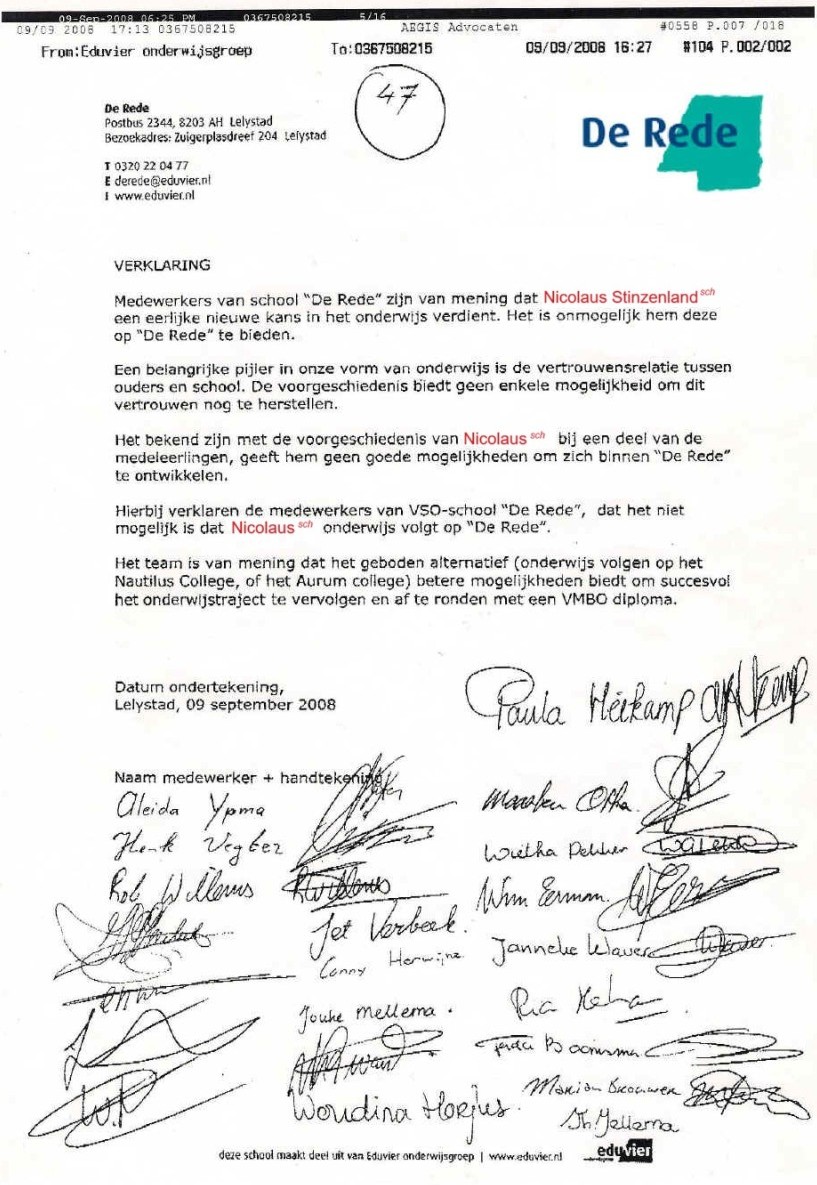 09-Sep-2008 06:25 PM 0367508215 5/16
09/09 2008 17:13 0367508215 AEGIS Advocaten #0558 P.007 /018
From:Eduvier onderwijsgroep To:0367508215 09/09/2008 16:27 #104 P.002/002
47
De Rede
Postbus 2344, 8203 AH Lelystad
Bezoekadres: Zuigerplasdreef 204 Lelystad
T 0320 22 04 77
E derede@eduvier.nl
I www.eduvier.nl
De Rede
VERKLARING
Medewerkers van school "De Rede" zijn van mening dat Nicolaus Stinzenland sch
een eerlijke nieuwe kans in het onderwijs verdient. Het is onmogelijk hem deze
op "De Rede" te bieden.
Een belangrijke pijler in onze vorm van onderwijs is de vertrouwensrelatie tussen
ouders en school. De voorgeschiedenis biedt geen enkele mogelijkheid om dit
vertrouwen nog te herstellen.
Het bekend zijn met de voorgeschiedenis van Nicolaus sch bij een deel van de
medeleerlingen, geeft hem geen goede mogelijkheden om zich binnen "De Rede"
te ontwikkelen.
Hierbij verklaren de medewerkers van VSO-school "De Rede", dat het niet
mogelijk is dat Nicolaus sch onderwijs volgt op "De Rede".
Het team is van mening dat het geboden alternatief (onderwijs volgen op het
Nautilus College, of het Aurum college) betere mogelijkheden biedt om succesvol
het onderwijstraject te vervolgen en af te ronden met een VMBO diploma.
Datum ondertekening,
Lelystad, 09 september 2008
Paula Heikamp
Naam medewerker + handtekening
Aleida Ypma
Henk Vegter
Rob Willems RWillems
Jet Verbeek.
Conny
Jouke Mellema.
Woudina
Wim Eerman.
Janneke Waver Waver
Ria
Boonsma
Marian Brouwer
Jellema
deze school maakt deel uit van Eduvier onderwijsgroep | www.eduvier.nl eduvier